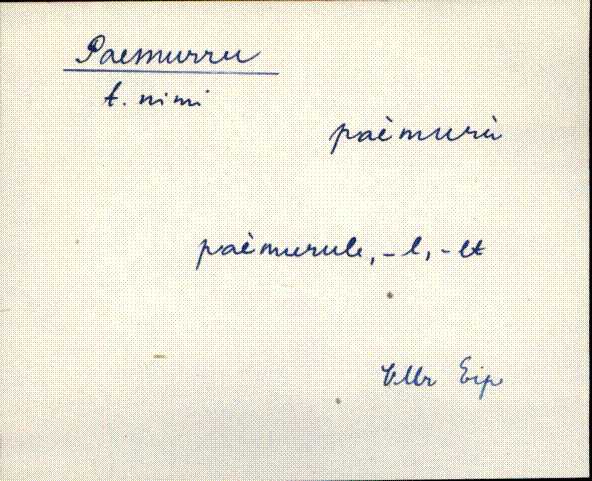 Paemurru
t. nimi
paèmuru̇̀
paèmurule, -l, -lt
VMr Eip